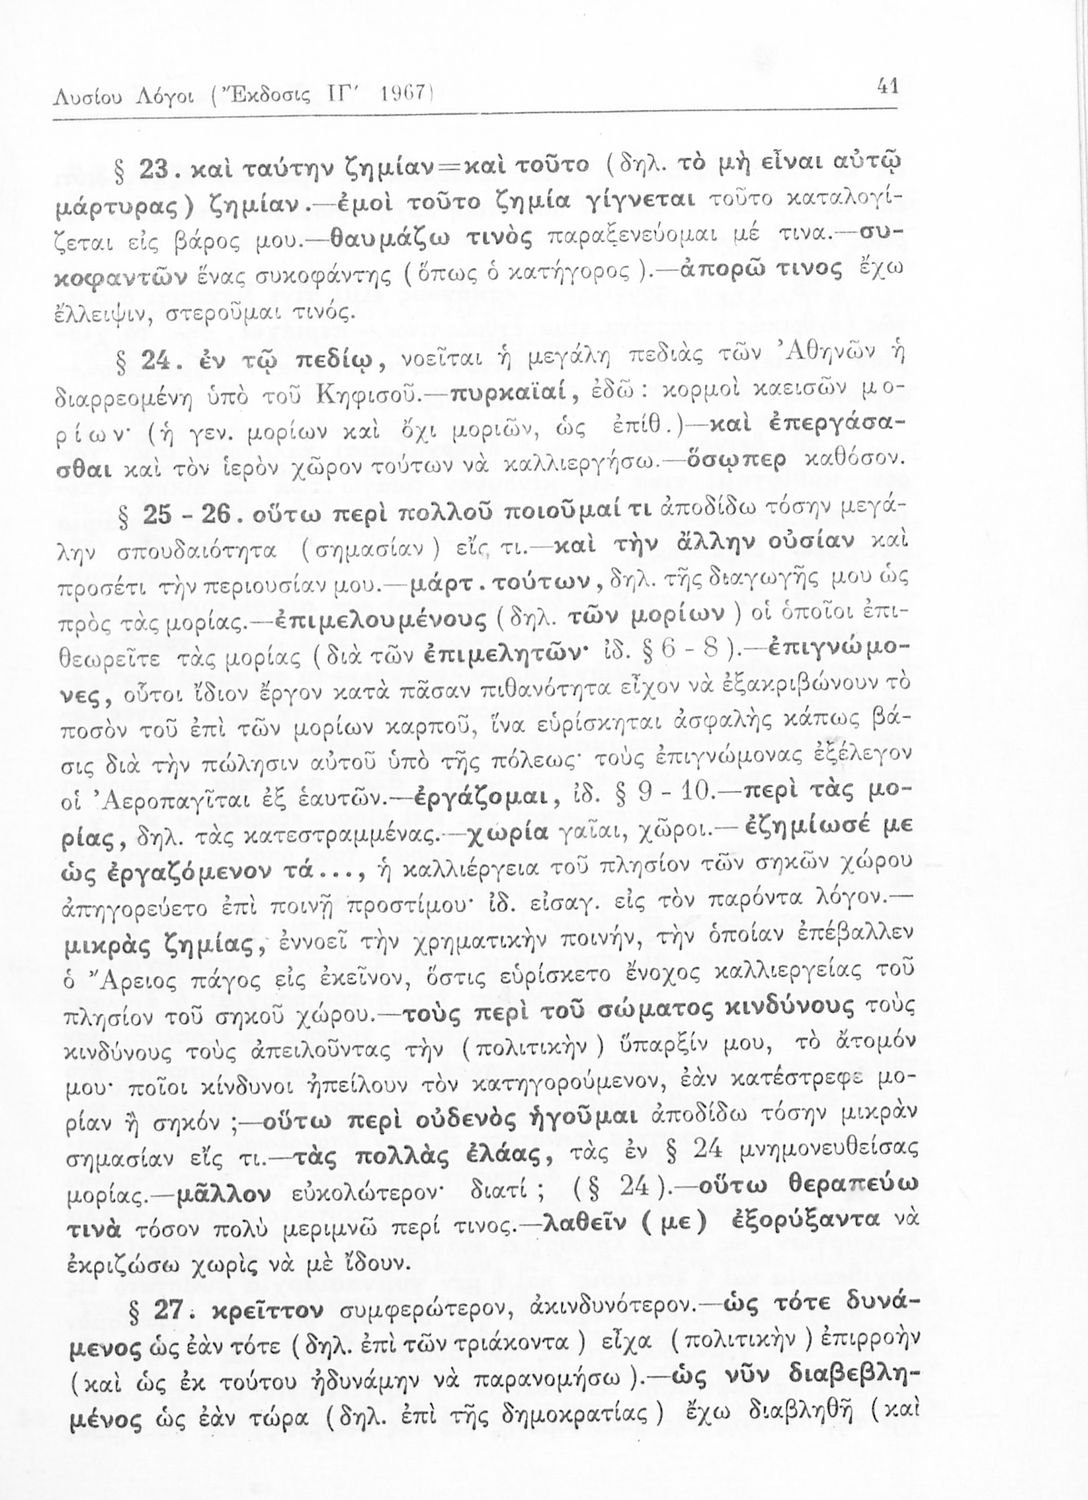 Λυσίου Λόγοι (Ἔκδοσις ΙΓ΄ 1967) 41
§ 23. καὶ ταύτην ζημίαν=καὶ τοῦτο (δηλ. τὸ μὴ εἶναι αὐτῷ
μάρτυρας) ζημίαν.—ἐμοὶ τοῦτο ζημία γίγνεται τοῦτο καταλογί-
ζεται εἰς βάρος μου.—θαυμάζω τινὸς παραξενεύομαι μέ τινα.—συ-
κοφαντῶν ἕνας συκοφάντης (ὅπως ὁ κατήγορος).—ἀπορῶ τινος ἔχω
ἔλλειψιν, στεροῦμαι τινός.
§ 24. ἐν τῷ πεδίῳ, νοεῖται ἡ μεγάλη πεδιὰς τῶν Ἀθηνῶν ἡ
διαρρεομένη ὑπὸ τοῦ Κηφισοῦ.—πυρκαϊαί, ἐδῶ: κορμοὶ καεισῶν μο-
ρίων· (ἡ γεν. μορίων καὶ ὄχι μοριῶν, ὡς ἐπίθ.)—καὶ ἐπεργάσα-
σθαι καὶ τὸν ἱερὸν χῶρον τούτων νὰ καλλιεργήσω.—ὅσῳπερ καθόσον.
§ 25 - 26. οὕτω περὶ πολλοῦ ποιοῦμαί τι ἀποδίδω τόσην μεγά-
λην σπουδαιότητα (σημασίαν) εἴς τι.—καὶ τὴν ἄλλην οὐσίαν καὶ
προσέτι τὴν περιουσίαν μου.—μάρτ. τούτων, δηλ. τῆς διαγωγῆς μου ὡς
πρὸς τὰς μορίας.—ἐπιμελουμένους (δηλ. τῶν μορίων) οἱ ὁποῖοι ἐπι-
θεωρεῖτε τὰς μορίας (διὰ τῶν ἐπιμελητῶν· ἰδ. § 6 - 8).—ἐπιγνώμο-
νες, οὗτοι ἴδιον ἔργον κατὰ πᾶσαν πιθανότητα εἶχον νὰ ἐξακριβώνουν τὸ
ποσὸν τοῦ ἐπὶ τῶν μορίων καρποῦ, ἵνα εὑρίσκηται ἀσφαλὴς κάπως βά-
σις διὰ τὴν πώλησιν αὐτοῦ ὑπὸ τῆς πόλεως· τοὺς ἐπιγνώμονας ἐξέλεγον
οἱ Ἀεροπαγῖται ἐξ ἑαυτῶν.—ἐργάζομαι, ἰδ. § 9 - 10.—περὶ τὰς μο-
ρίας, δηλ. τὰς κατεστραμμένας.—χωρία γαῖαι, χῶροι.—ἐζημίωσέ με
ὡς ἐργαζόμενον τά..., ἡ καλλιέργεια τοῦ πλησίον τῶν σηκῶν χώρου
ἀπηγορεύετο ἐπὶ ποινῇ προστίμου· ἰδ. εἰσαγ. εἰς τὸν παρόντα λόγον.—
μικρὰς ζημίας, ἐννοεῖ τὴν χρηματικὴν ποινήν, τὴν ὁποίαν ἐπέβαλλεν
ὁ Ἄρειος πάγος εἰς ἐκεῖνον, ὅστις εὑρίσκετο ἔνοχος καλλιεργείας τοῦ
πλησίον τοῦ σηκοῦ χώρου.—τοὺς περὶ τοῦ σώματος κινδύνους τοὺς
κινδύνους τοὺς ἀπειλοῦντας τὴν (πολιτικὴν) ὕπαρξίν μου, τὸ ἄτομόν
μου· ποῖοι κίνδυνοι ἠπείλουν τὸν κατηγορούμενον, ἐὰν κατέστρεφε μο-
ρίαν ἢ σηκόν ;—οὕτω περὶ οὐδενὸς ἡγοῦμαι ἀποδίδω τόσην μικρὰν
σημασίαν εἴς τι.—τὰς πολλὰς ἐλάας, τὰς ἐν § 24 μνημονευθείσας
μορίας.—μᾶλλον εὐκολώτερον· διατί ; (§ 24).—οὕτω θεραπεύω
τινὰ τόσον πολὺ μεριμνῶ περί τινος.—λαθεῖν (με) ἐξορύξαντα νὰ
ἐκριζώσω χωρὶς νὰ μὲ ἴδουν.
§ 27. κρεῖττον συμφερώτερον, ἀκινδυνότερον.—ὡς τότε δυνά-
μενος ὡς ἐὰν τότε (δηλ. ἐπὶ τῶν τριάκοντα) εἶχα (πολιτικὴν) ἐπιρροὴν
(καὶ ὡς ἐκ τούτου ἠδυνάμην νὰ παρανομήσω).—ὡς νῦν διαβεβλη-
μένος ὡς ἐὰν τώρα (δηλ. ἐπὶ τῆς δημοκρατίας) ἔχω διαβληθῆ (καὶ